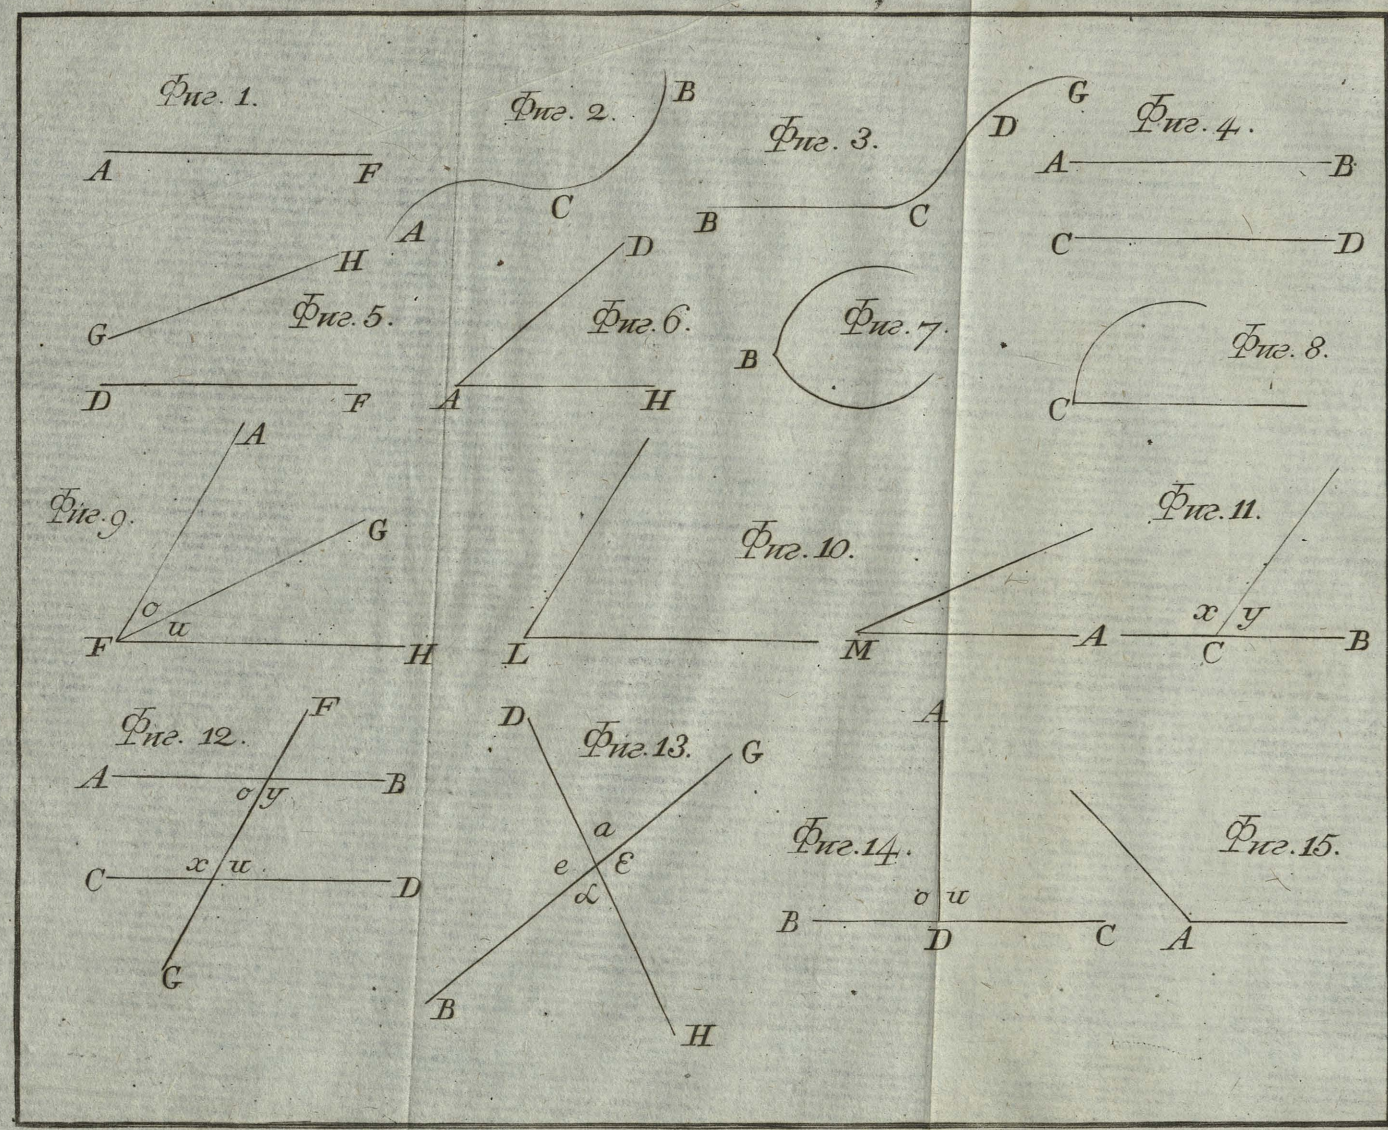 Фиг. 1.
A F
Фиг. 2.
A C B
Фиг. 3.
B C D G
Фиг. 4.
A B
C D
Фиг. 5.
G H
D F
Фиг. 6.
D
A H
Фиг. 7.
B
Фиг. 8.
C
Фиг. 9.
A
G
o
u
F H
Фиг. 10.
L
M A
Фиг. 11.
x y
C B
Фиг. 12.
F
A B
o y
x u
C D
G
Фиг. 13.
D G
a
e ε
α
B
H
Фиг. 14.
A
o u
B D C
Фиг. 15.
A